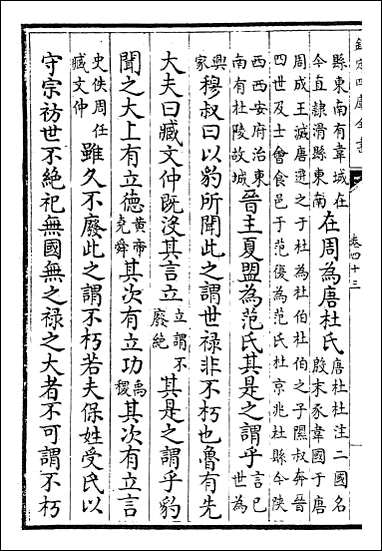 欽定四庫全書
卷四十三
縣東南有韋城在今直隸滑縣東南在周為唐杜氏唐杜杜注二國名殷末豕韋國于唐
周成王滅唐遷之于杜為杜伯杜伯之子隰叔奔晉
四世及士會食邑于范復為范氏杜京兆杜縣今陜
西西安府治東南有杜陵故城晉主夏盟為范氏其是之謂乎言已世為
興家穆叔曰以豹所聞此之謂世禄非不朽也魯有先
大夫曰臧文仲既没其言立立謂不廢絶其是之謂乎豹
聞之大上有立德黃帝堯舜其次有立功禹稷其次有立言
史佚周任臧文仲雖久不廢此之謂不朽若夫保姓受氏以
守宗祊世不絶祀無國無之禄之大者不可謂不朽